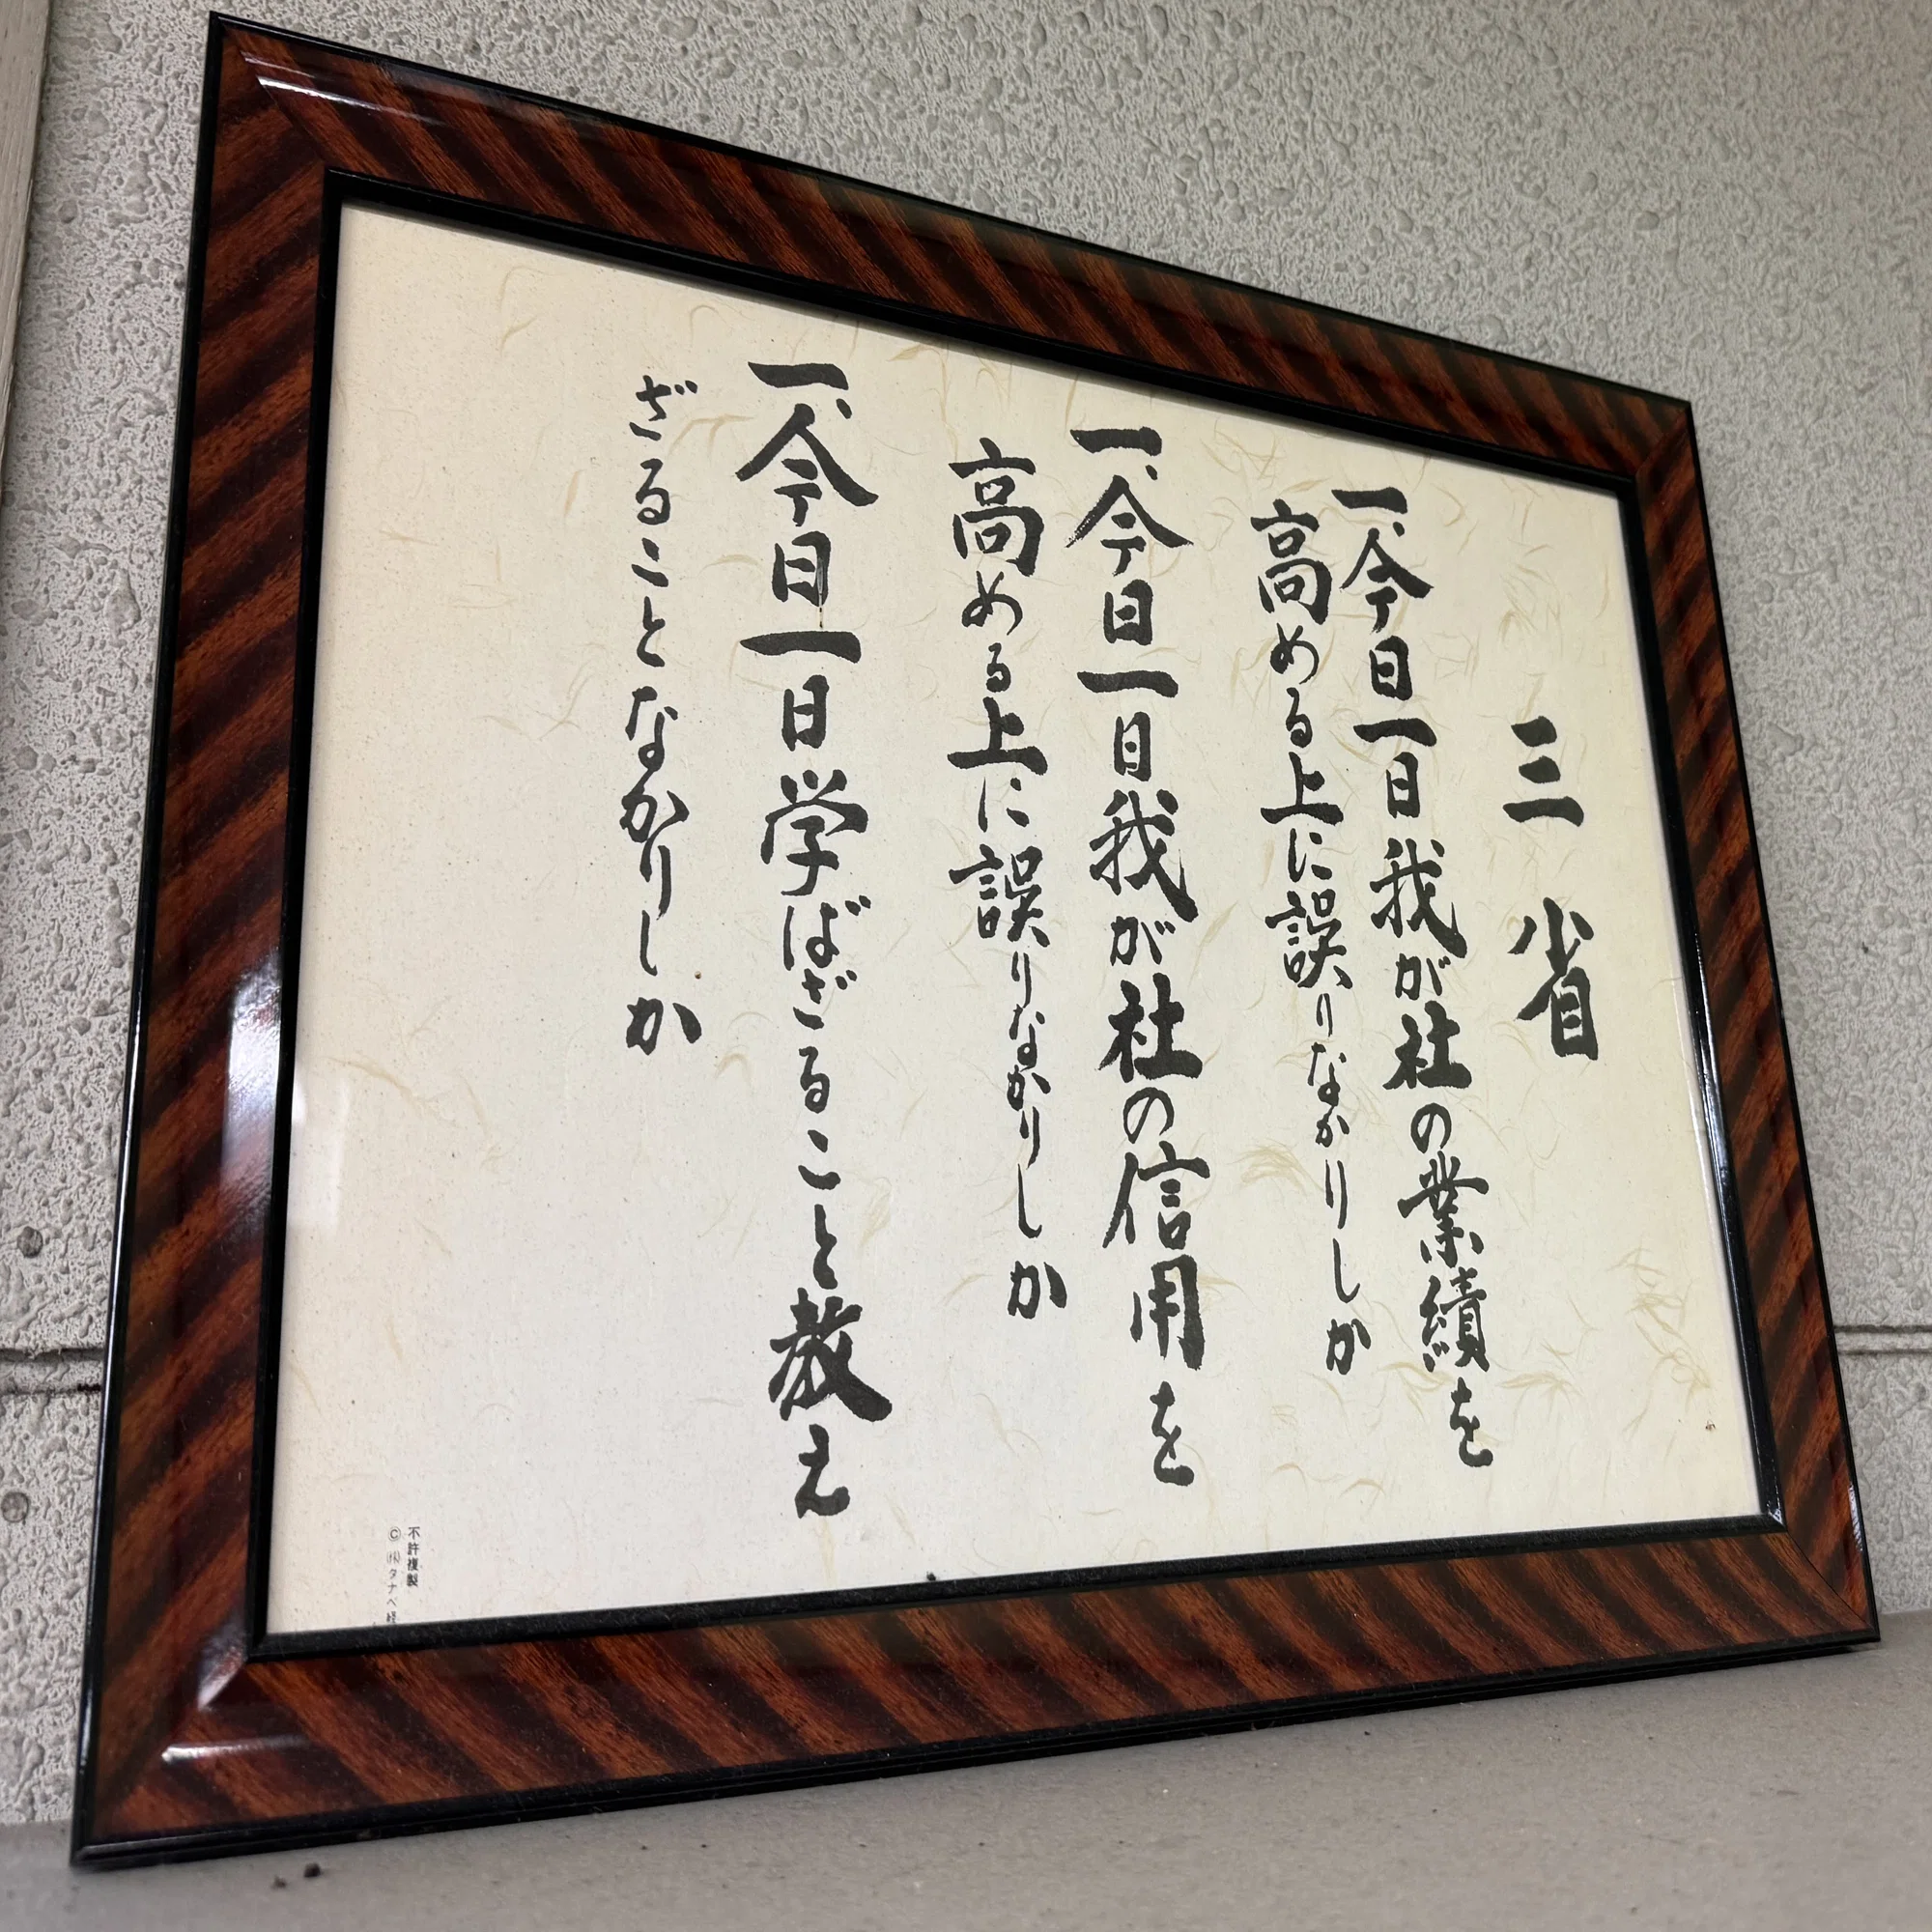 三省
一、今日一日我が社の業績を
高める上に誤りなかりしか
一、今日一日我が社の信用を
高める上に誤りなかりしか
一、今日一日学ばざること教え
ざることなかりしか
不許複製
©㈱タナベ経